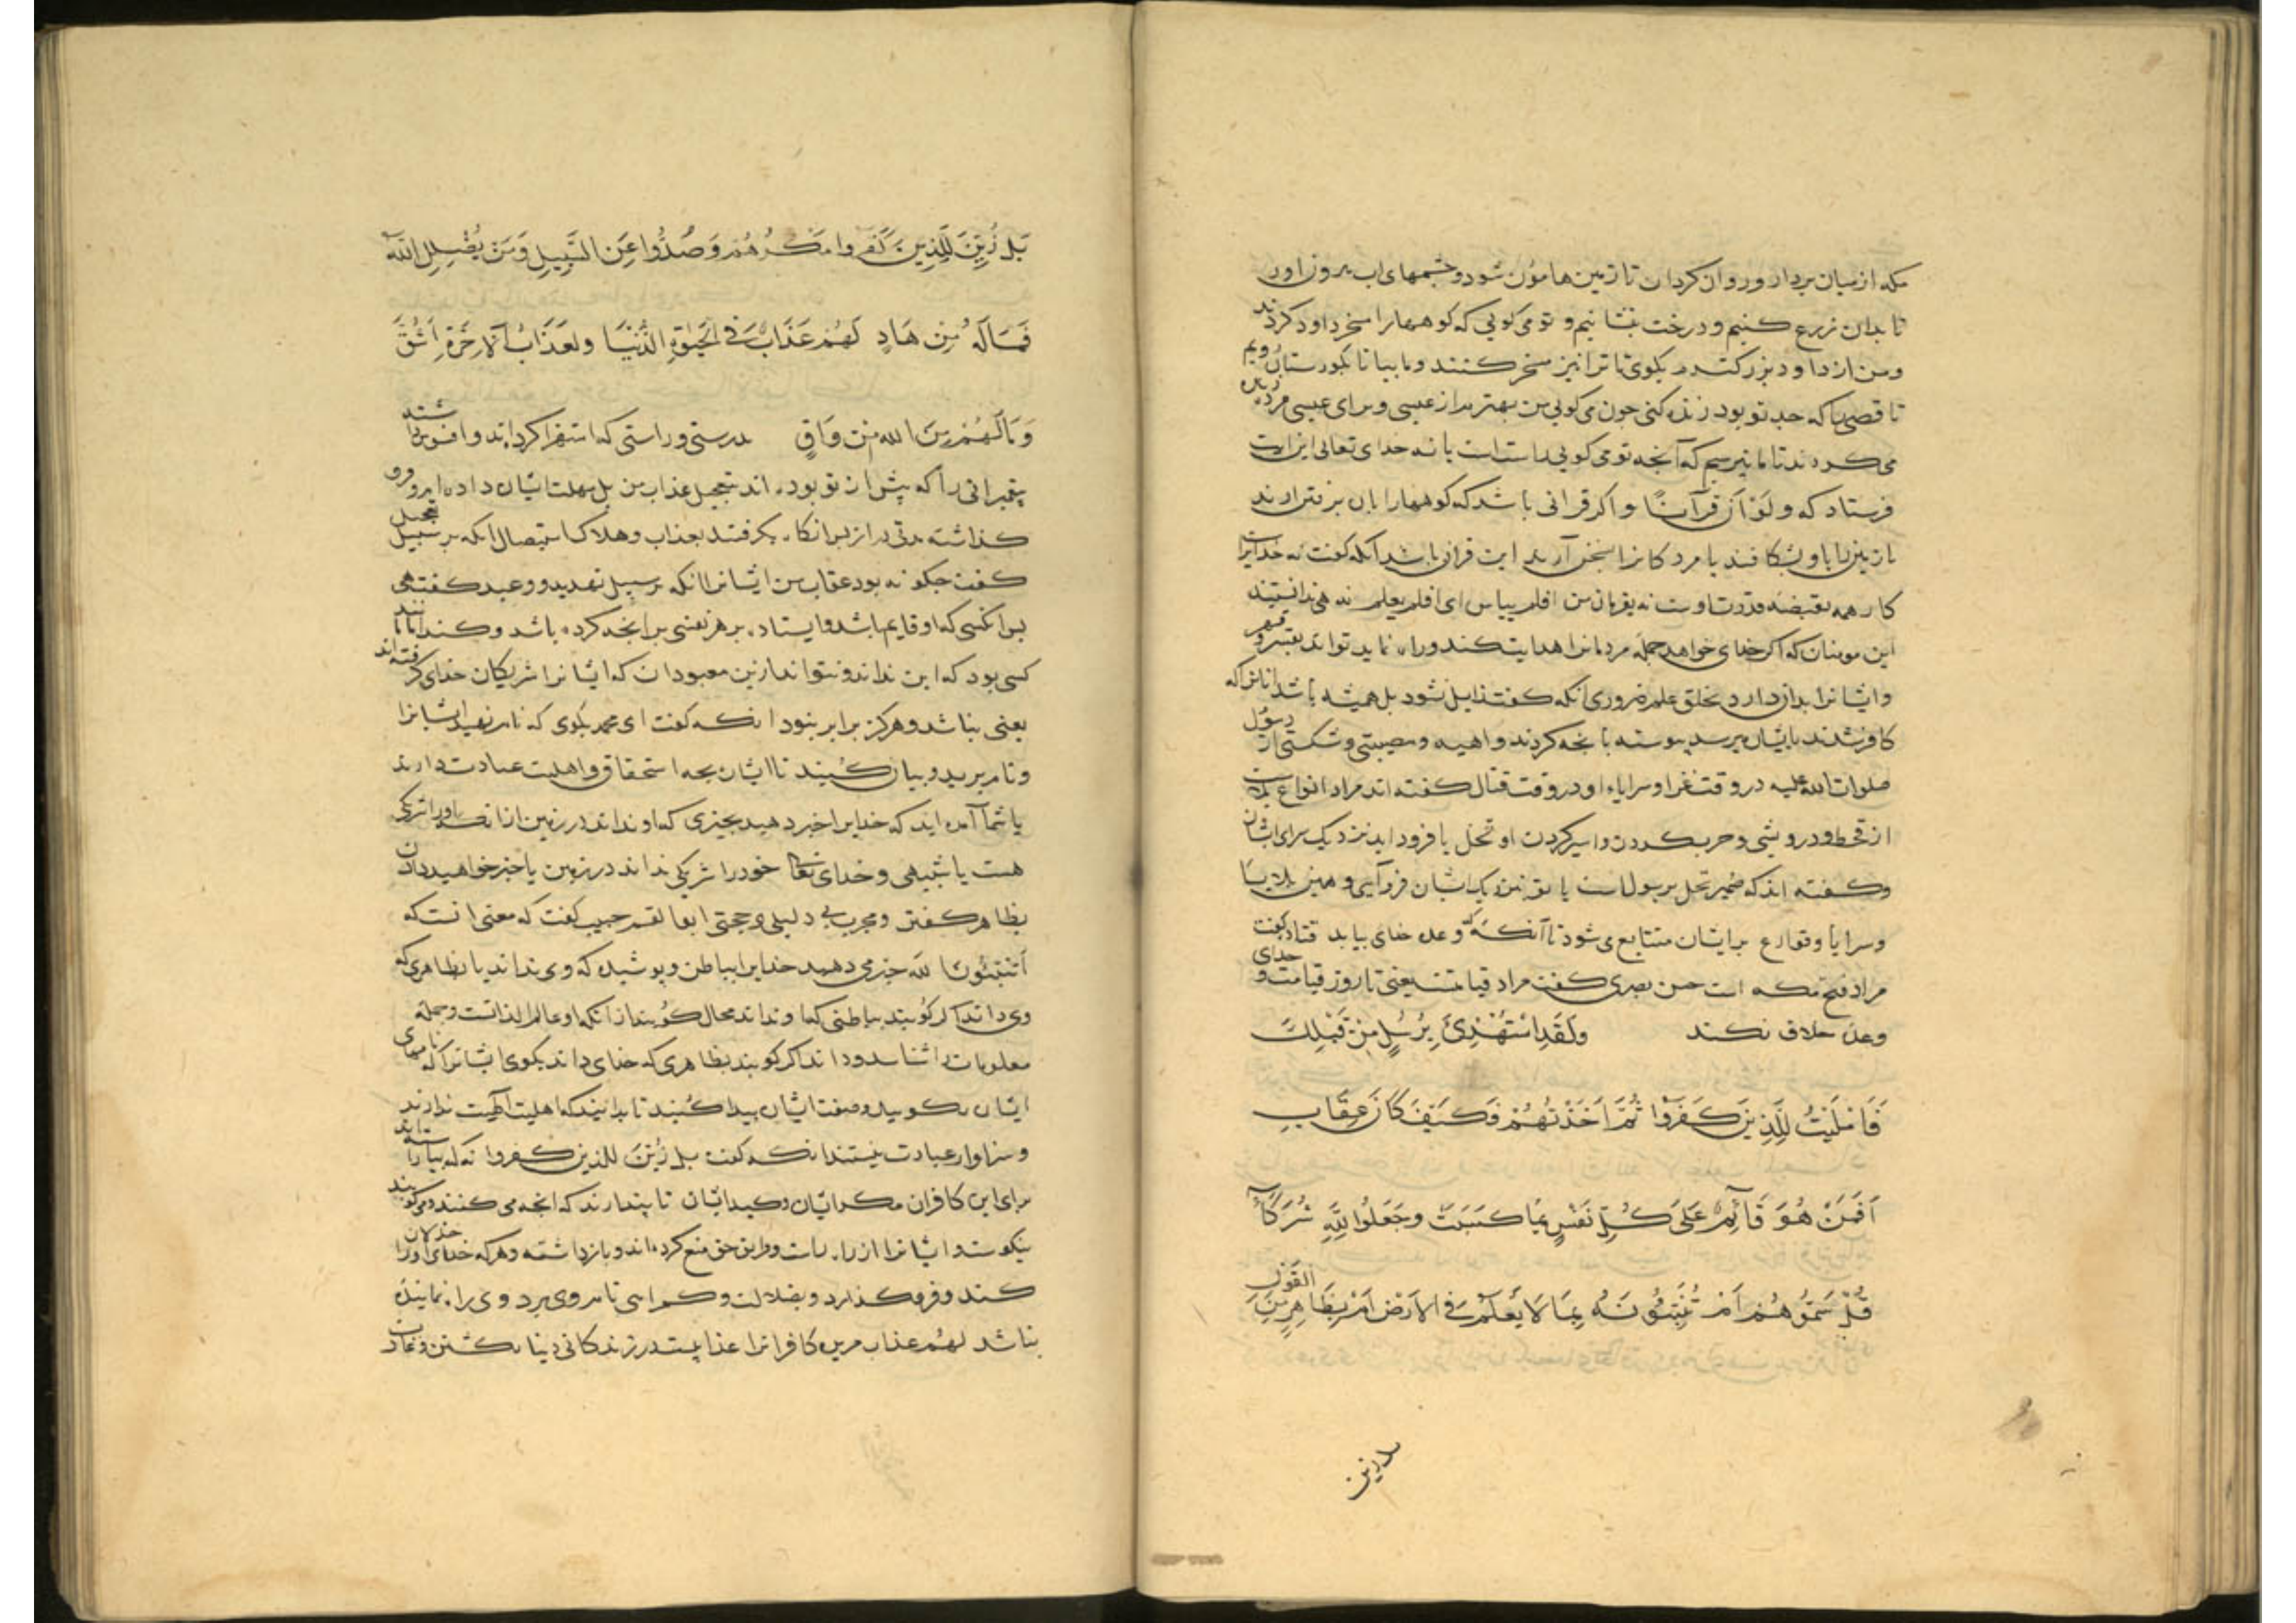 مکه از میان بردار و روان کردان تا زمین هامون شود و چشمهای اب بروز اور
تا بدان زرع کنیم و درخت بنشانیم و تو می کویی که کوهها را مسخر داود کردند
و من از داود بزرکترم بکوی تا ترا نیز مسخر کنند و ما بیا تا بکورستان رویم
تا قصی را که جد تو بود زنده کنی چون می کویی من بهترم از عیسی و برای عیسی مرده
می کردند تا ما بپرسیم که آنچه تو می کویی راست است یا نه خدای تعالی این ایت
فرستاد که ولو ان قرآنا و اکر قرانی باشد که کوهها را بان برفتن ارند
یا زمین را باو بشکافند یا مردکانرا بسخن آرند این قران باشد آنکه کفت نه خدایراست
کار همه بقبضه قدرت اوست نه بفرمان من افلم ییاس ای افلم یعلم نه همی دانستند
این مومنان که اکر خدای خواهد جمله مردمانرا هدایت کند و راه نماید تواند بقسر و قهر
و ایشانرا بدان دارد بخلق علم ضروری انکه کفت زایل نشود بل همیشه باشد انانرا که
کافر شدند بایشان میرسد پیوسته بانچه کردند داهیه و مصیبتی و شکستی از رسول
صلوات الله علیه در وقت غزا و سرایاء او در وقت قتال کفته اند مراد انواع بلاست
از قحط و درویشی و حرب کردن و اسیر کردن او تحل یا فرود اید نزدیک سرای ایشان
و کفته اند که ضمیر تحل بر رسول است یا تو بنزدیک ایشان فروآیی و همین بلایا
و سرایا و قوارع بر ایشان متتابع می شود تا آنکه که وعده خدای بیاید قتاده کفت
مراد فتح مکه است حسن بصری کفت مراد قیامتست یعنی تا روز قیامت و خدای
وعده خلاف نکند ولَقَدِ اسْتُهْزِئَ بِرُسُلٍ مِنْ قَبْلِكَ
فَاَمْلَيْتُ لِلَّذِينَ كَفَرُوا ثُمَّ اَخَذْتُهُمْ فَكَيْفَ كَانَ عِقَابِ
اَفَمَنْ هُوَ قَآئِمٌ عَلَى كُلِّ نَفْسٍ بِمَا كَسَبَتْ وجَعَلُوا لِلَّهِ شُرَكَآءَ
قُلْ سَمُّوهُمْ اَمْ تُنَبِّئُونَهُ بِمَا لَا يَعْلَمُ فِي الاَرْضِ اَمْ بِظَاهِرٍ مِنَ القَوْلِ
بل زین
بَلْ زُيِّنَ لِلَّذِينَ كَفَرُوا مَكْرُهُمْ وَصُدُّوا عَنِ السَّبِيلِ وَمَنْ يُضْلِلِ اللّٰهُ
فَمَا لَهُ مِنْ هَادٍ لَهُمْ عَذَابٌ فِي الْحَيٰوةِ الدُّنْيَا ولَعَذَابُ الْآخِرَةِ اَشَقُّ
وَمَا لَهُمْ مِنَ اللهِ مِنْ وَاقٍ بدرستی و راستی که استهزا کرده اند و افسوس داشتند
پیغمبرانی را که پیش از تو بوده اند بتعجیل عذاب من بل مهلت ایشان داده ایم و فرو
کذاشته مدتی دراز پس انکاه بکرفتند بعذاب و هلاک استیصال انکه بر سبیل تعجیل
کفت چکونه بود عقاب من ایشانرا انکه بر سبیل تهدید و وعید کفت هی
بر انکسی که او قایم باشد و ایستاده بر هر نفسی بر انچه کرده باشد و کند انانند
کسی بود که این نداند و نتواند از این معبودان که ایشانرا شریکان خدای کرفته اند
یعنی نباشد و هرکز برابر نبود انکه کفت ای محمد بکوی که نام نهید ایشانرا
و نام برید و بیان کنید تا ایشان بچه استحقاق و اهلیت عبادت دارند
یا شما آمده اید که خدایرا خبر دهید بچیزی که او نداند در زمین از انکه او را شریکی
هست یا شبیهی و خدای تعالی خود را شریکی نداند در زمین یا خبر خواهید دادن
بظاهر کفتن و مجرب بی دلیلی و حجتی ابوالقسم حبیب کفت که معنی انست که
أتنبئون الله خبر می دهید خدایرا بباطن و پوشیده که وی نداند یا بظاهری که
وی داند اکر کویند بباطنی که او نداند محال کویند از آنکه او عالم الذاتست و جمله
معلومات را شناسد و داند اکر کویند بظاهری که خدای داند بکوی ایشانرا که نامهای
ایشان بکویید و صفت ایشان پیدا کنید تا بدانیند که اهلیت الهیت ندارند
و سزاوار عبادت نیستند انکه کفت بل زُيِّنَ للذین کفروا نه که بیاراسته اند
برای این کافران مکر ایشان و کید ایشان تا پندارند که انچه می کنند و می کویند
نیکوست و ایشانرا از راه راست و طریق حق منع کرده اند و بازداشته و هرکه خدای او را خذلان
کند و فروکذارد و بضلالت و کمراهی نام وی برد وی را راه نماینده
نباشد لهم عذاب مرین کافرانرا عذابیست در زندکانی دنیا بکشتن و غارت